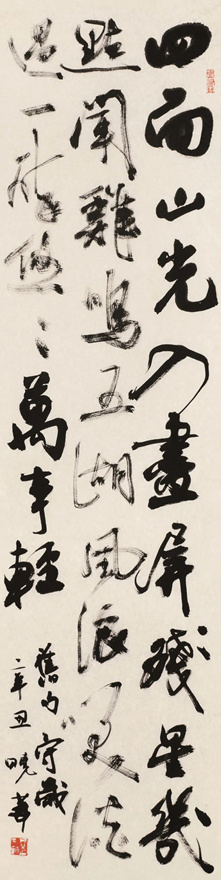 四面山光入畫屏殘星幾
點聞雞鳴五湖風浪笑談
過一醉悠〻萬事輕
舊句守歲
辛丑曉